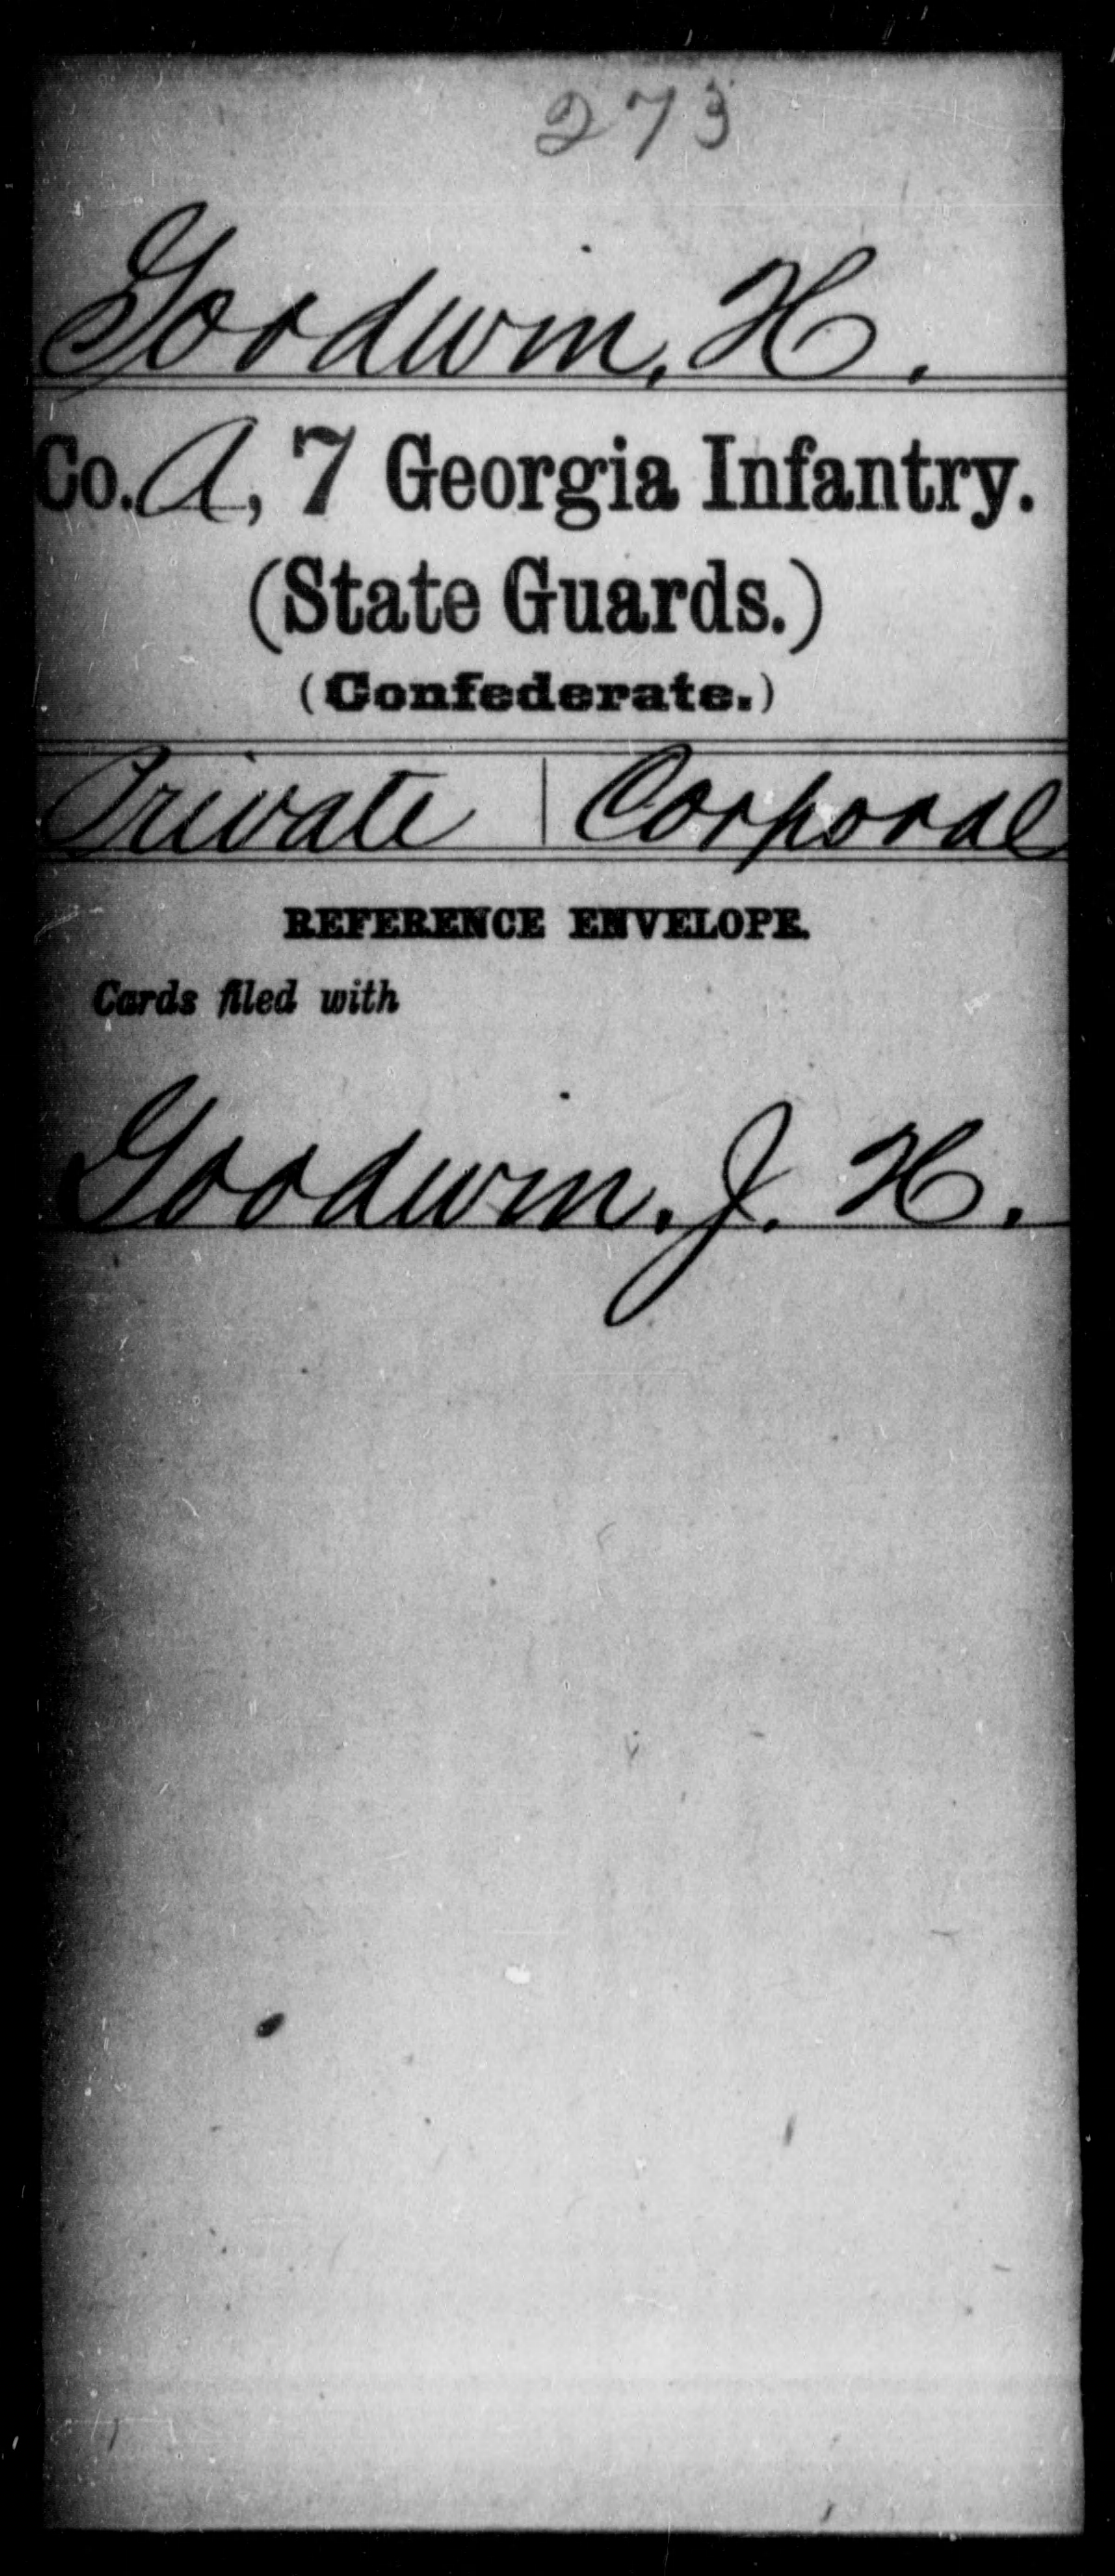 273
Goodwin, H.
Co. A, 7 Georgia Infantry.
(State Guards.)
(Confederate.)
Private | Corporal
REFERENCE ENVELOPE.
Cards filed with
Goodwin, J. H.